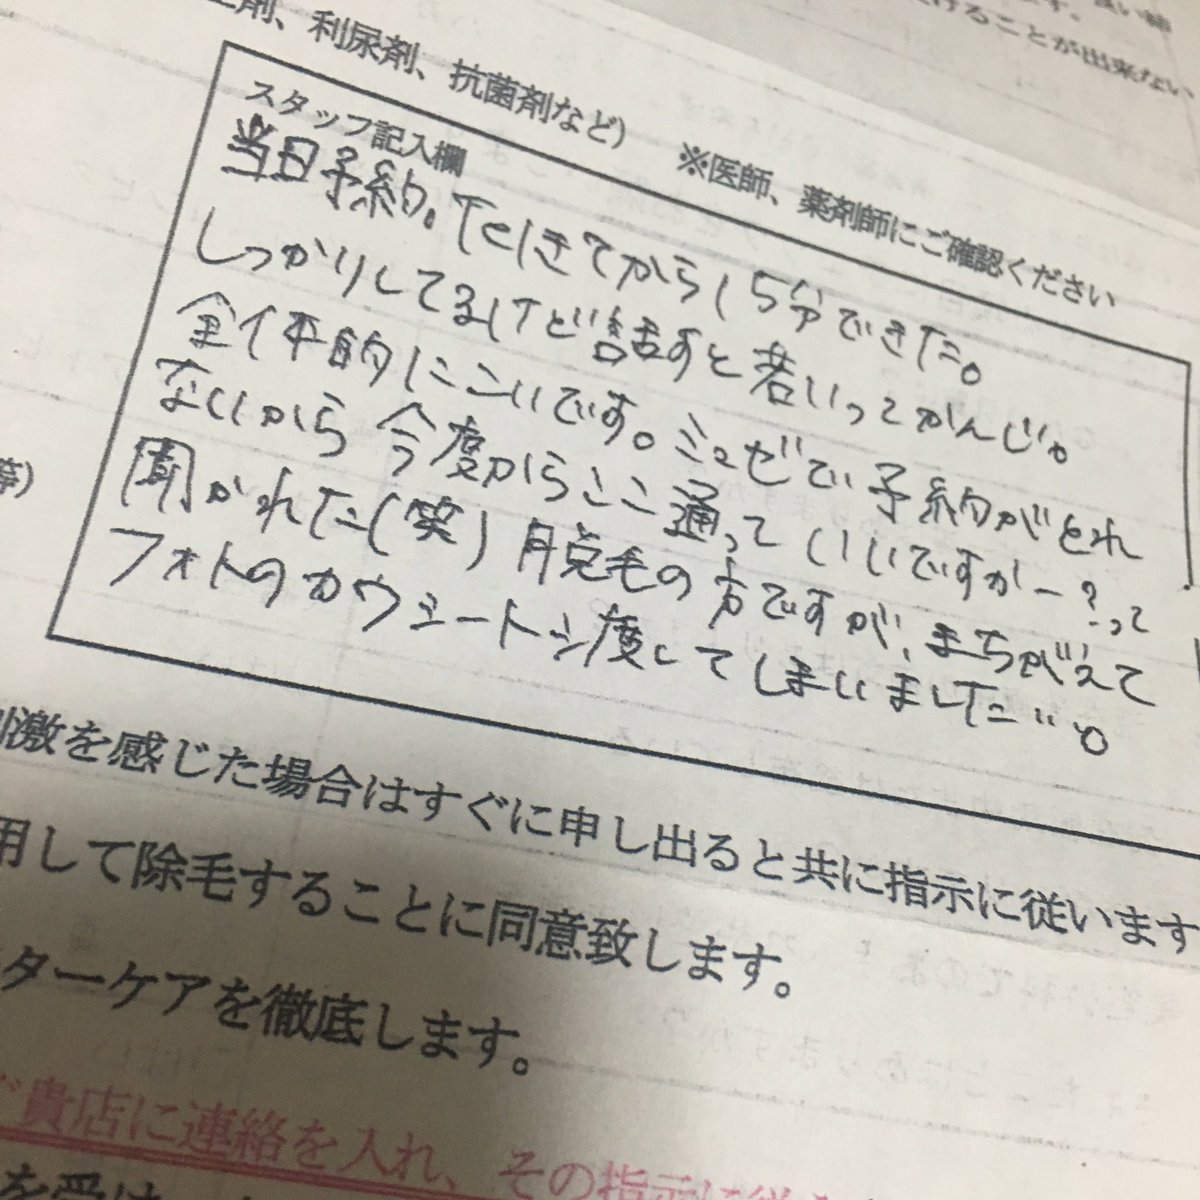 けることが出来ない
剤、利尿剤、抗菌剤など) ※医師、薬剤師にご確認ください
スタッフ記入欄
当日予約。Telきてから15分できた。
しっかりしてるけど話すと若いってかんじ。
全体的にこいです。ミュゼで予約がとれ
ないから今度からここ通っていいですかー?って
聞かれた(笑)脱毛の方ですが、まちがえて
フォトのカウシート渡してしまいました…。
激を感じた場合はすぐに申し出ると共に指示に従います
用して除毛することに同意致します。
ターケアを徹底します。
貴店に連絡を入れ、その指示に従